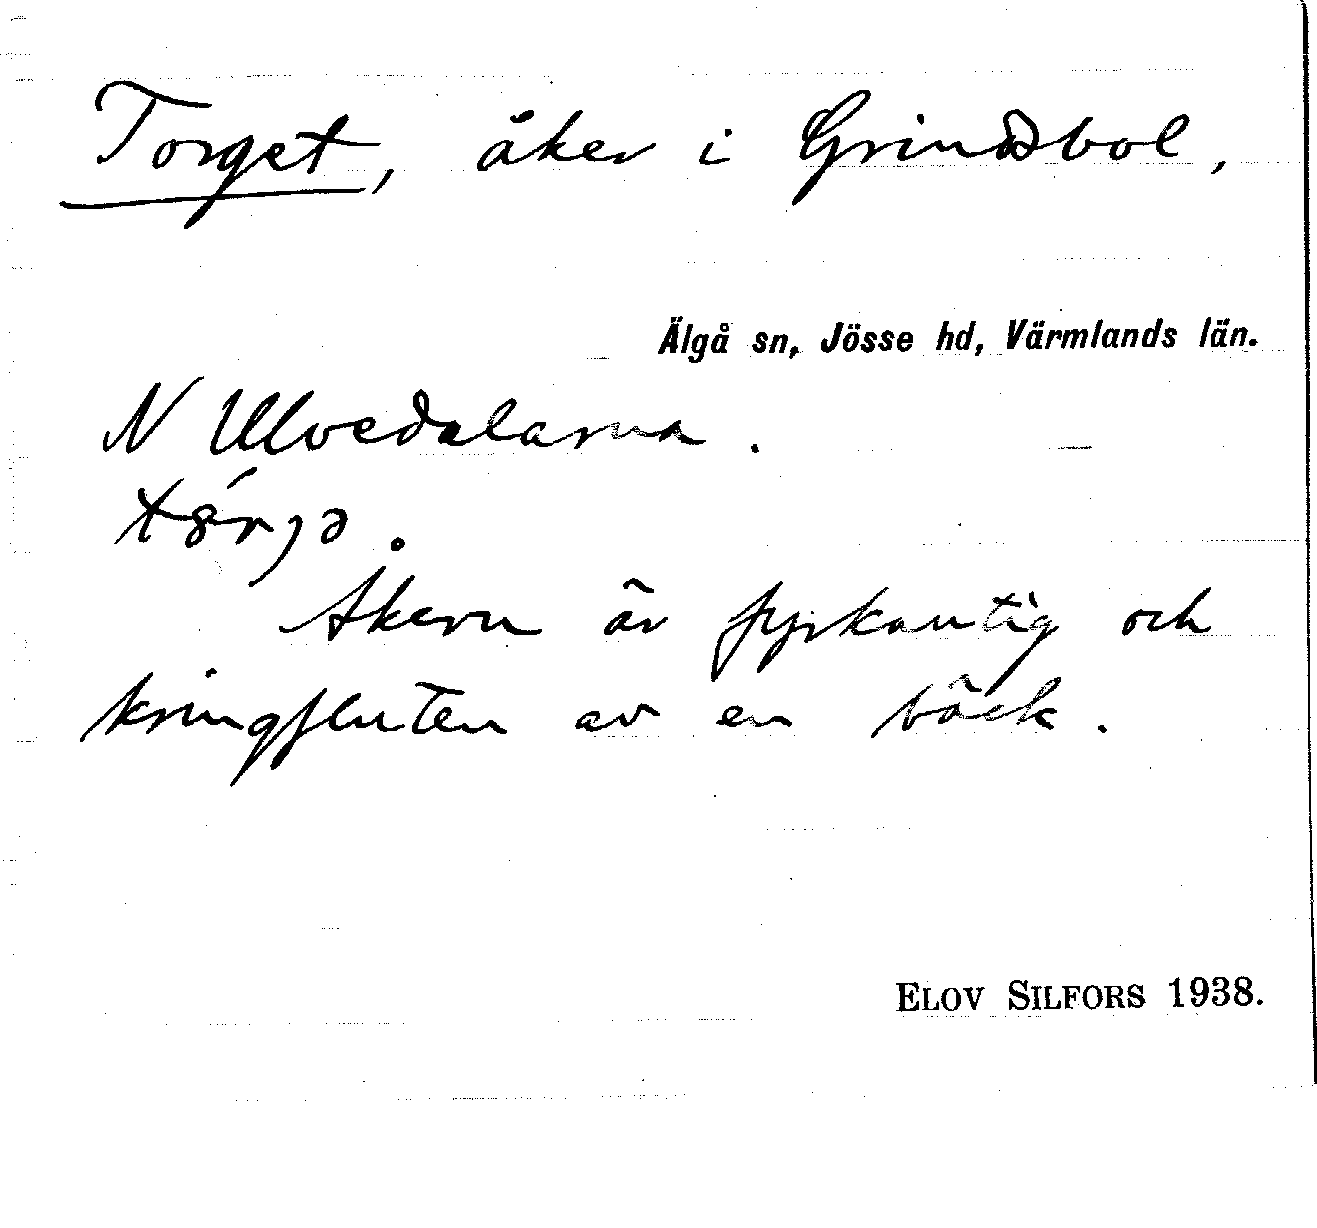 Torget, åker i Grindsbol,
Älgå sn, Jösse hd, Värmlands län.
N Ulvedalarna.
Åkern är fyrkantig och
kringfluten av en bäck.
ELOV SILFORS 1938.